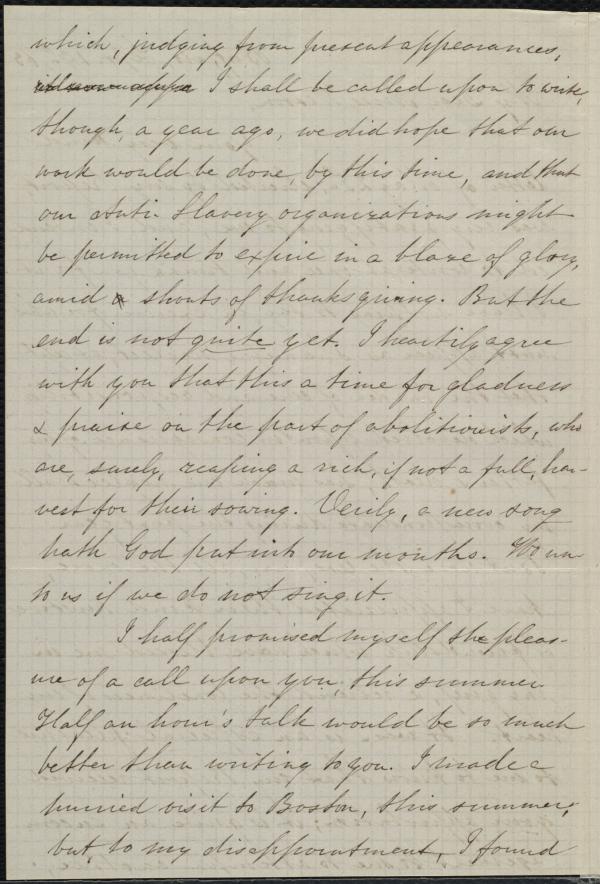 which, judging from present appearances,
I shall be called upon to write,
though, a year ago, we did hope that our
work would be done, by this time, and that
our Anti-Slavery organizations might
be permitted to expire in a blaze of glory,
amid shouts of thanksgiving. But the
end is not quite yet. I heartily agree
with you that this a time for gladness
& praise on the part of abolitionists, who
are, surely, reaping a rich, if not a full, har-
vest for their sowing. Verily, a new song
hath God put into our mouths. Wo un-
to us if we do not sing it.
I half promised myself the pleas-
ure of a call upon you, this summer.
Half an hour's talk would be so much
better than writing to you. I made a
hurried visit to Boston, this summer,
but, to my disappointment, I found